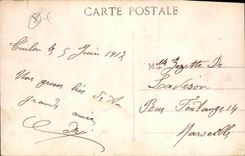 CARTE POSTALE
Toulon le 5 Juin 1913
Une grosse bise de ta
grande amie
Mlle Gezette De
Rue Fontange 14
Marseille